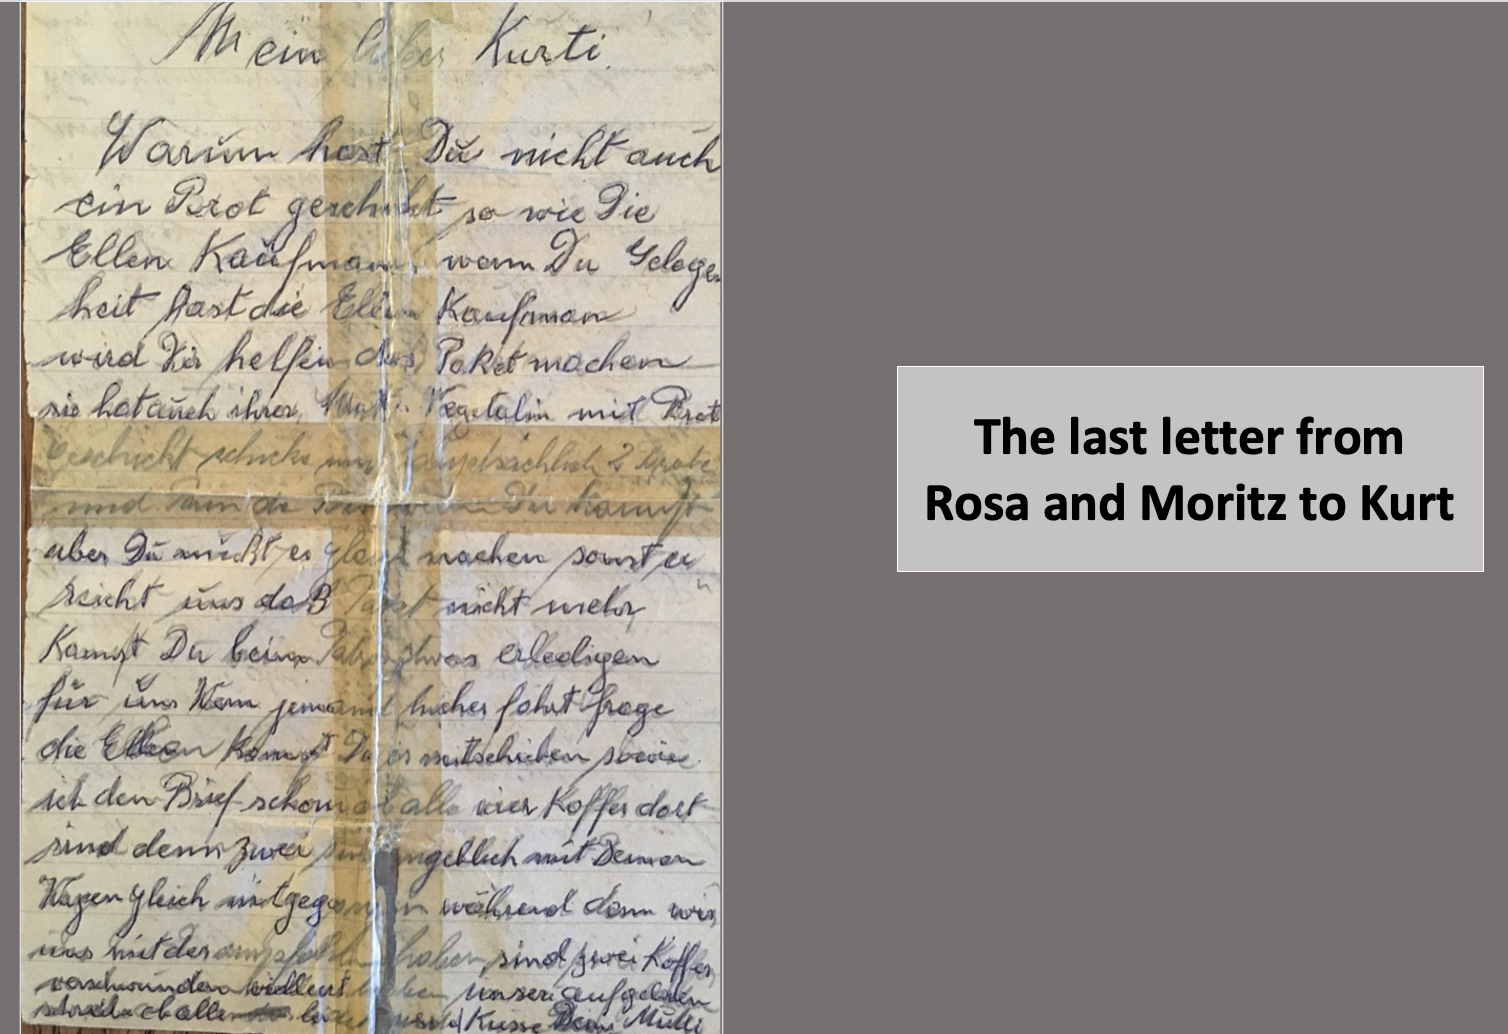 Mein lieber Kurti.
Warum hast Du nicht auch
ein Brot geschickt so wie Die
Ellen Kaufmann, wenn Du Gelegen
heit hast die Ellen Kaufman
wird Dir helfen das Paket machen
sie hat auch ihrer Mutti Vegetalin mit Brot
Geschickt schicke uns hauptsächlich 2 Brote
und wenn Du kannst
aber Du mußt es gleich machen sonst er
reicht uns daß nicht mehr
Kannst Du beim etwas erledigen
für uns Wenn jemand hieher fahrt frage
die Ellen Kannst Du es mitschicken sowie
ich den Brief schon ob alle vier Koffer dort
sind denn zwei sind angeblich mit Deinen
Wagen gleich mitgegangen während denn wir
uns mit der haben, sind zwei Koffer
verschwunden haben unser aufgeladen
schreibe ob alle Küsse Deine Mutti
The last letter from
Rosa and Moritz to Kurt